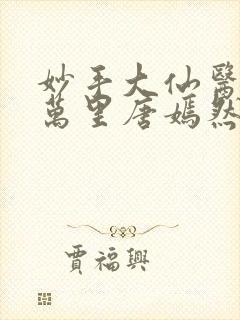 妙手大仙醫
萬里唐嫣然
賈福興